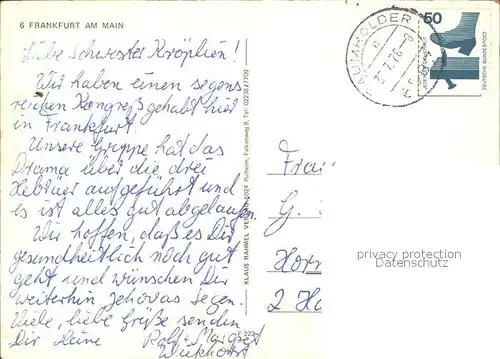 6 FRANKFURT AM MAIN
Liebe Schwester Kröplien!
Wir haben einen segens
reichen Kongreß gehabt hier
in Frankfurt.
Unsere Gruppe hat das
Drama über die drei
Hebräer aufgeführt und
es ist alles gut abgelaufen.
Wir hoffen, daß es Dir
gesundheitlich noch gut
geht und wünschen Dir
weiterhin Jehovas Segen.
Viele, liebe Grüße senden
Dir Deine Rolf + Margret
KLAUS RAHMEL VERLAG 5024 Pulheim, Falkenweg 8, Tel: 02238/7709
BAUMHOLDER
50
DEUTSCHE BUNDESPOST
Frau
G.
Horn
2 H
privacy protection
Datenschutz